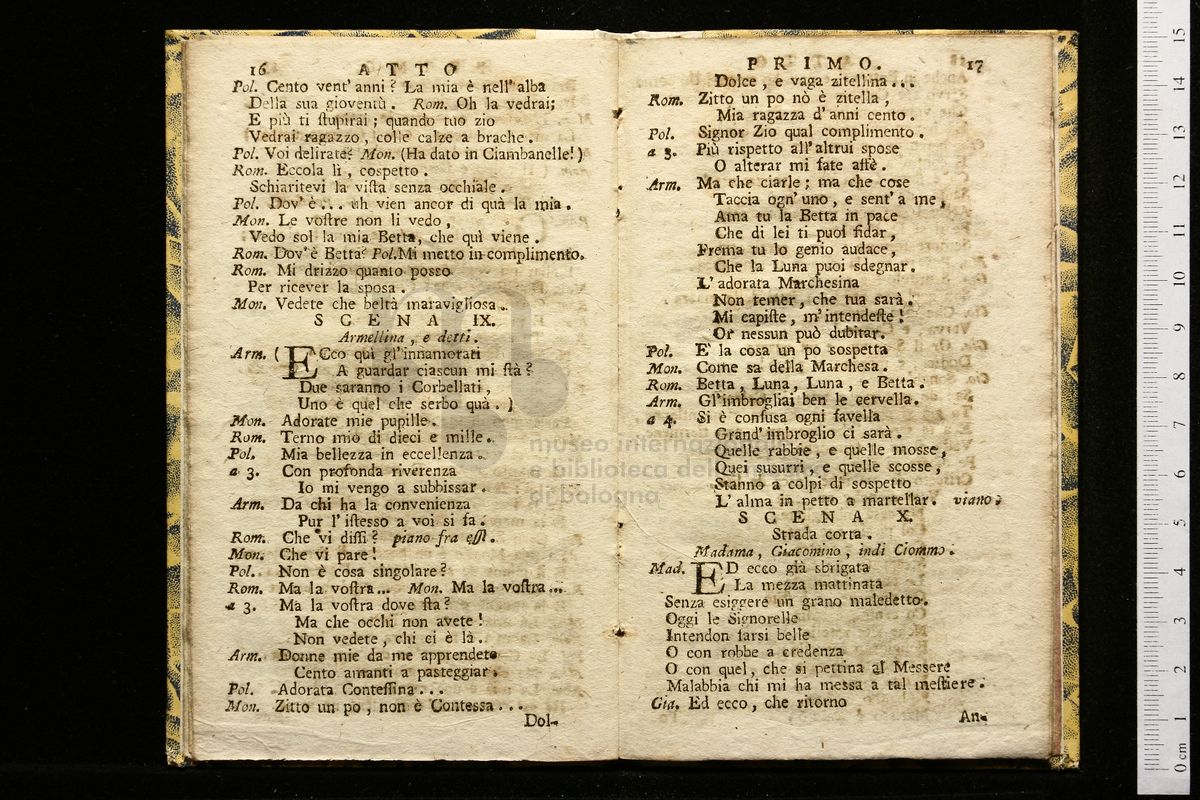 16 ATTO
Pol. Cento vent' anni? La mia è nell' alba
Della sua gioventù. Rom. Oh la vedrai;
E più ti ſtupirai; quando tuo zio
Vedrai ragazzo, colle calze a brache.
Pol. Voi delirate? Mon. (Ha dato in Ciambanelle!)
Rom. Eccola lì, coſpetto.
Schiaritevi la viſta senza occhiale.
Pol. Dov' è... uh vien ancor di quà la mia.
Mon. Le voſtre non li vedo,
Vedo sol la mia Betta, che quì viene.
Rom. Dov' è Betta? Pol. Mi metto in complimento.
Rom. Mi drizzo quanto posso
Per ricever la sposa.
Mon. Vedete che beltà maravigliosa.
SCENA IX.
Armellina, e detti.
Arm. (Ecco quì gl' innamorati
A guardar ciascun mi ſtà?
Due saranno i Corbellati,
Uno è quel che serbo quà.)
Mon. Adorate mie pupille.
Rom. Terno mio di dieci e mille.
Pol. Mia bellezza in eccellenza.
a 3. Con profonda riverenza
Io mi vengo a subbissar.
Arm. Da chi ha la convenienza
Pur l' iſtesso a voi si fa.
Rom. Che vi diſſi? piano fra eſſi.
Mon. Che vi pare!
Pol. Non è cosa singolare?
Rom. Ma la voſtra... Mon. Ma la voſtra...
a 3. Ma la voſtra dove ſta?
Ma che occhi non avete!
Non vedete, chi ci è là.
Arm. Donne mie da me apprendete
Cento amanti a paſteggiar.
Pol. Adorata Conteſſina...
Mon. Zitto un po, non è Contessa...
Dol-
PRIMO. 17
Dolce, e vaga zitellina...
Rom. Zitto un po nò è zitella,
Mia ragazza d' anni cento.
Pol. Signor Zio qual complimento.
a 3. Più rispetto all' altrui spose
O alterar mi fate affè.
Arm. Ma che ciarle; ma che cose
Taccia ogn' uno, e sent' a me,
Ama tu la Betta in pace
Che di lei ti puoi fidar,
Frema tu lo genio audace,
Che la Luna puoi sdegnar.
L' adorata Marchesina
Non temer, che tua sarà.
Mi capiſte, m' intendeſte!
Or nessun può dubitar.
Pol. E' la cosa un po sospetta
Mon. Come sa della Marchesa.
Rom. Betta, Luna, Luna, e Betta.
Arm. Gl' imbrogliai ben le cervella.
a 4. Si è confusa ogni favella
Grand' imbroglio ci sarà.
Quelle rabbie, e quelle mosse,
Quei susurri, e quelle scosse,
Stanno a colpi di sospetto
L' alma in petto a martellar. viano.
SCENA X.
Strada corta.
Madama, Giacomino, indi Ciommo.
Mad. ED ecco già sbrigata
La mezza mattinata
Senza esiggere un grano maledetto.
Oggi le Signorelle
Intendon farsi belle
O con robbe a credenza
O con quel, che si pettina al Messere
Malabbia chi mi ha messa a tal meſtiere.
Gia. Ed ecco, che ritorno
An-
museo internaz
e biblioteca del
di bologna
0 cm 1 2 3 4 5 6 7 8 9 10 11 12 13 14 15